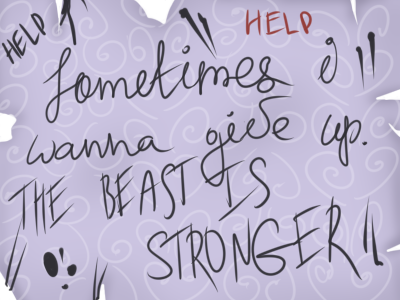 HELP
HELP
Sometimes I
wanna give up.
THE BEAST IS
STRONGER